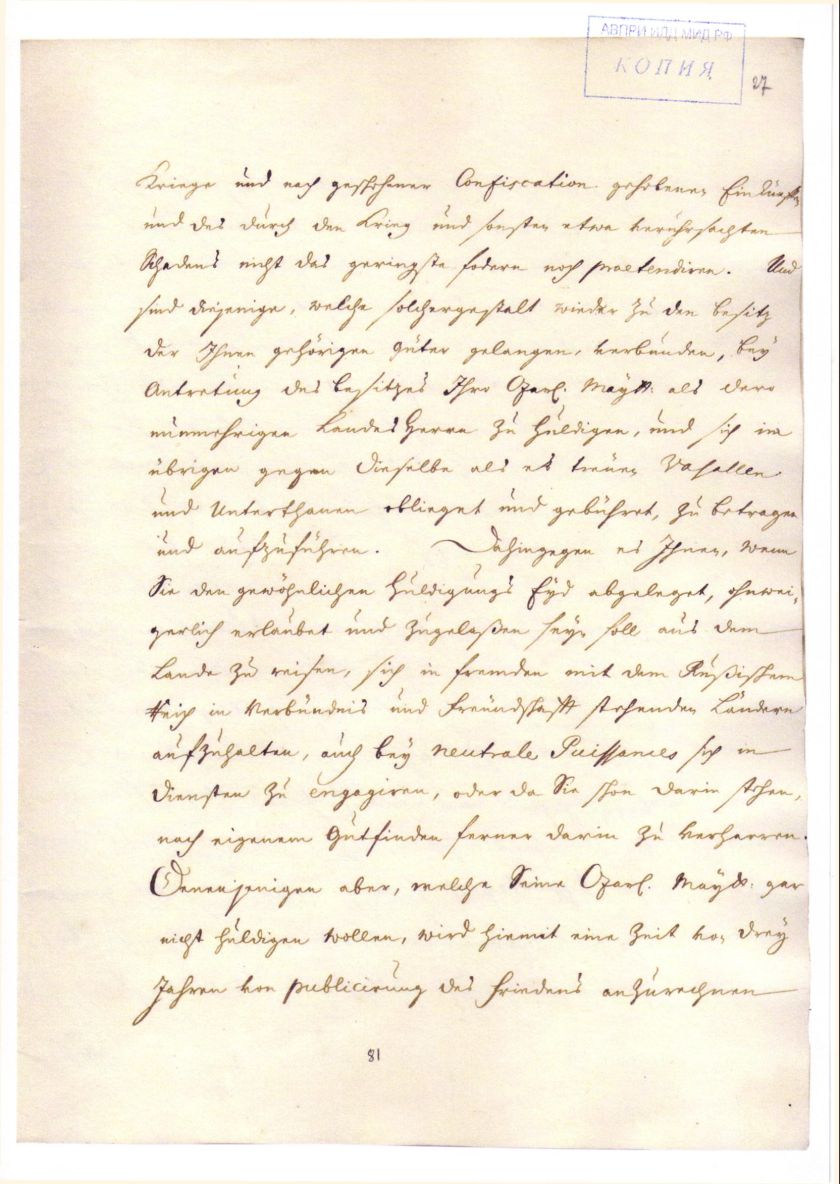 АВПРИ ИДД МИД РФ
КОПИЯ
27
Kriege und nach geschehener Confiscation gehobenen Einkünfte,
und des durch den Krieg und sonsten etwa veruhrsachten
Schadens nicht das geringste fodern noch praetendiren. Und
sind diejenige, welche solchergestalt wieder zu den besitz
der Ihnen gehörigen Güter gelangen, verbunden, bey
Antretung des besitzes Ihro Czarl. Maytt: als dero
nunmehrigen Landes Herrn zu huldigen, und sich im
übrigen gegen Dieselbe als es treuen Vasallen
und Unterthanen oblieget und gebühret, zu betragen
und aufzuführen. Dahingegen es Ihnen, wenn
Sie den gewöhnlichen Huldigungs Eyd abgeleget, ohnwei,
gerlich erlaubet und zugelaßen seyn soll aus dem
Lande zu reisen, sich in fremden mit dem Rußischem
Reich in Verbündnis und Freündschafft stehenden Ländern
aufzuhalten, auch bey neutrale Puissances sich in
Diensten zu engagiren, oder da Sie schon darin stehen,
nach eigenem Gutfinden ferner darin zu verharren.
Denenjenigen aber, welche Seine Czarl. Maytt: gar
nicht huldigen wollen, wird hiemit eine Zeit von drey
Jahren von publicirung des Friedens anzurechnen
81